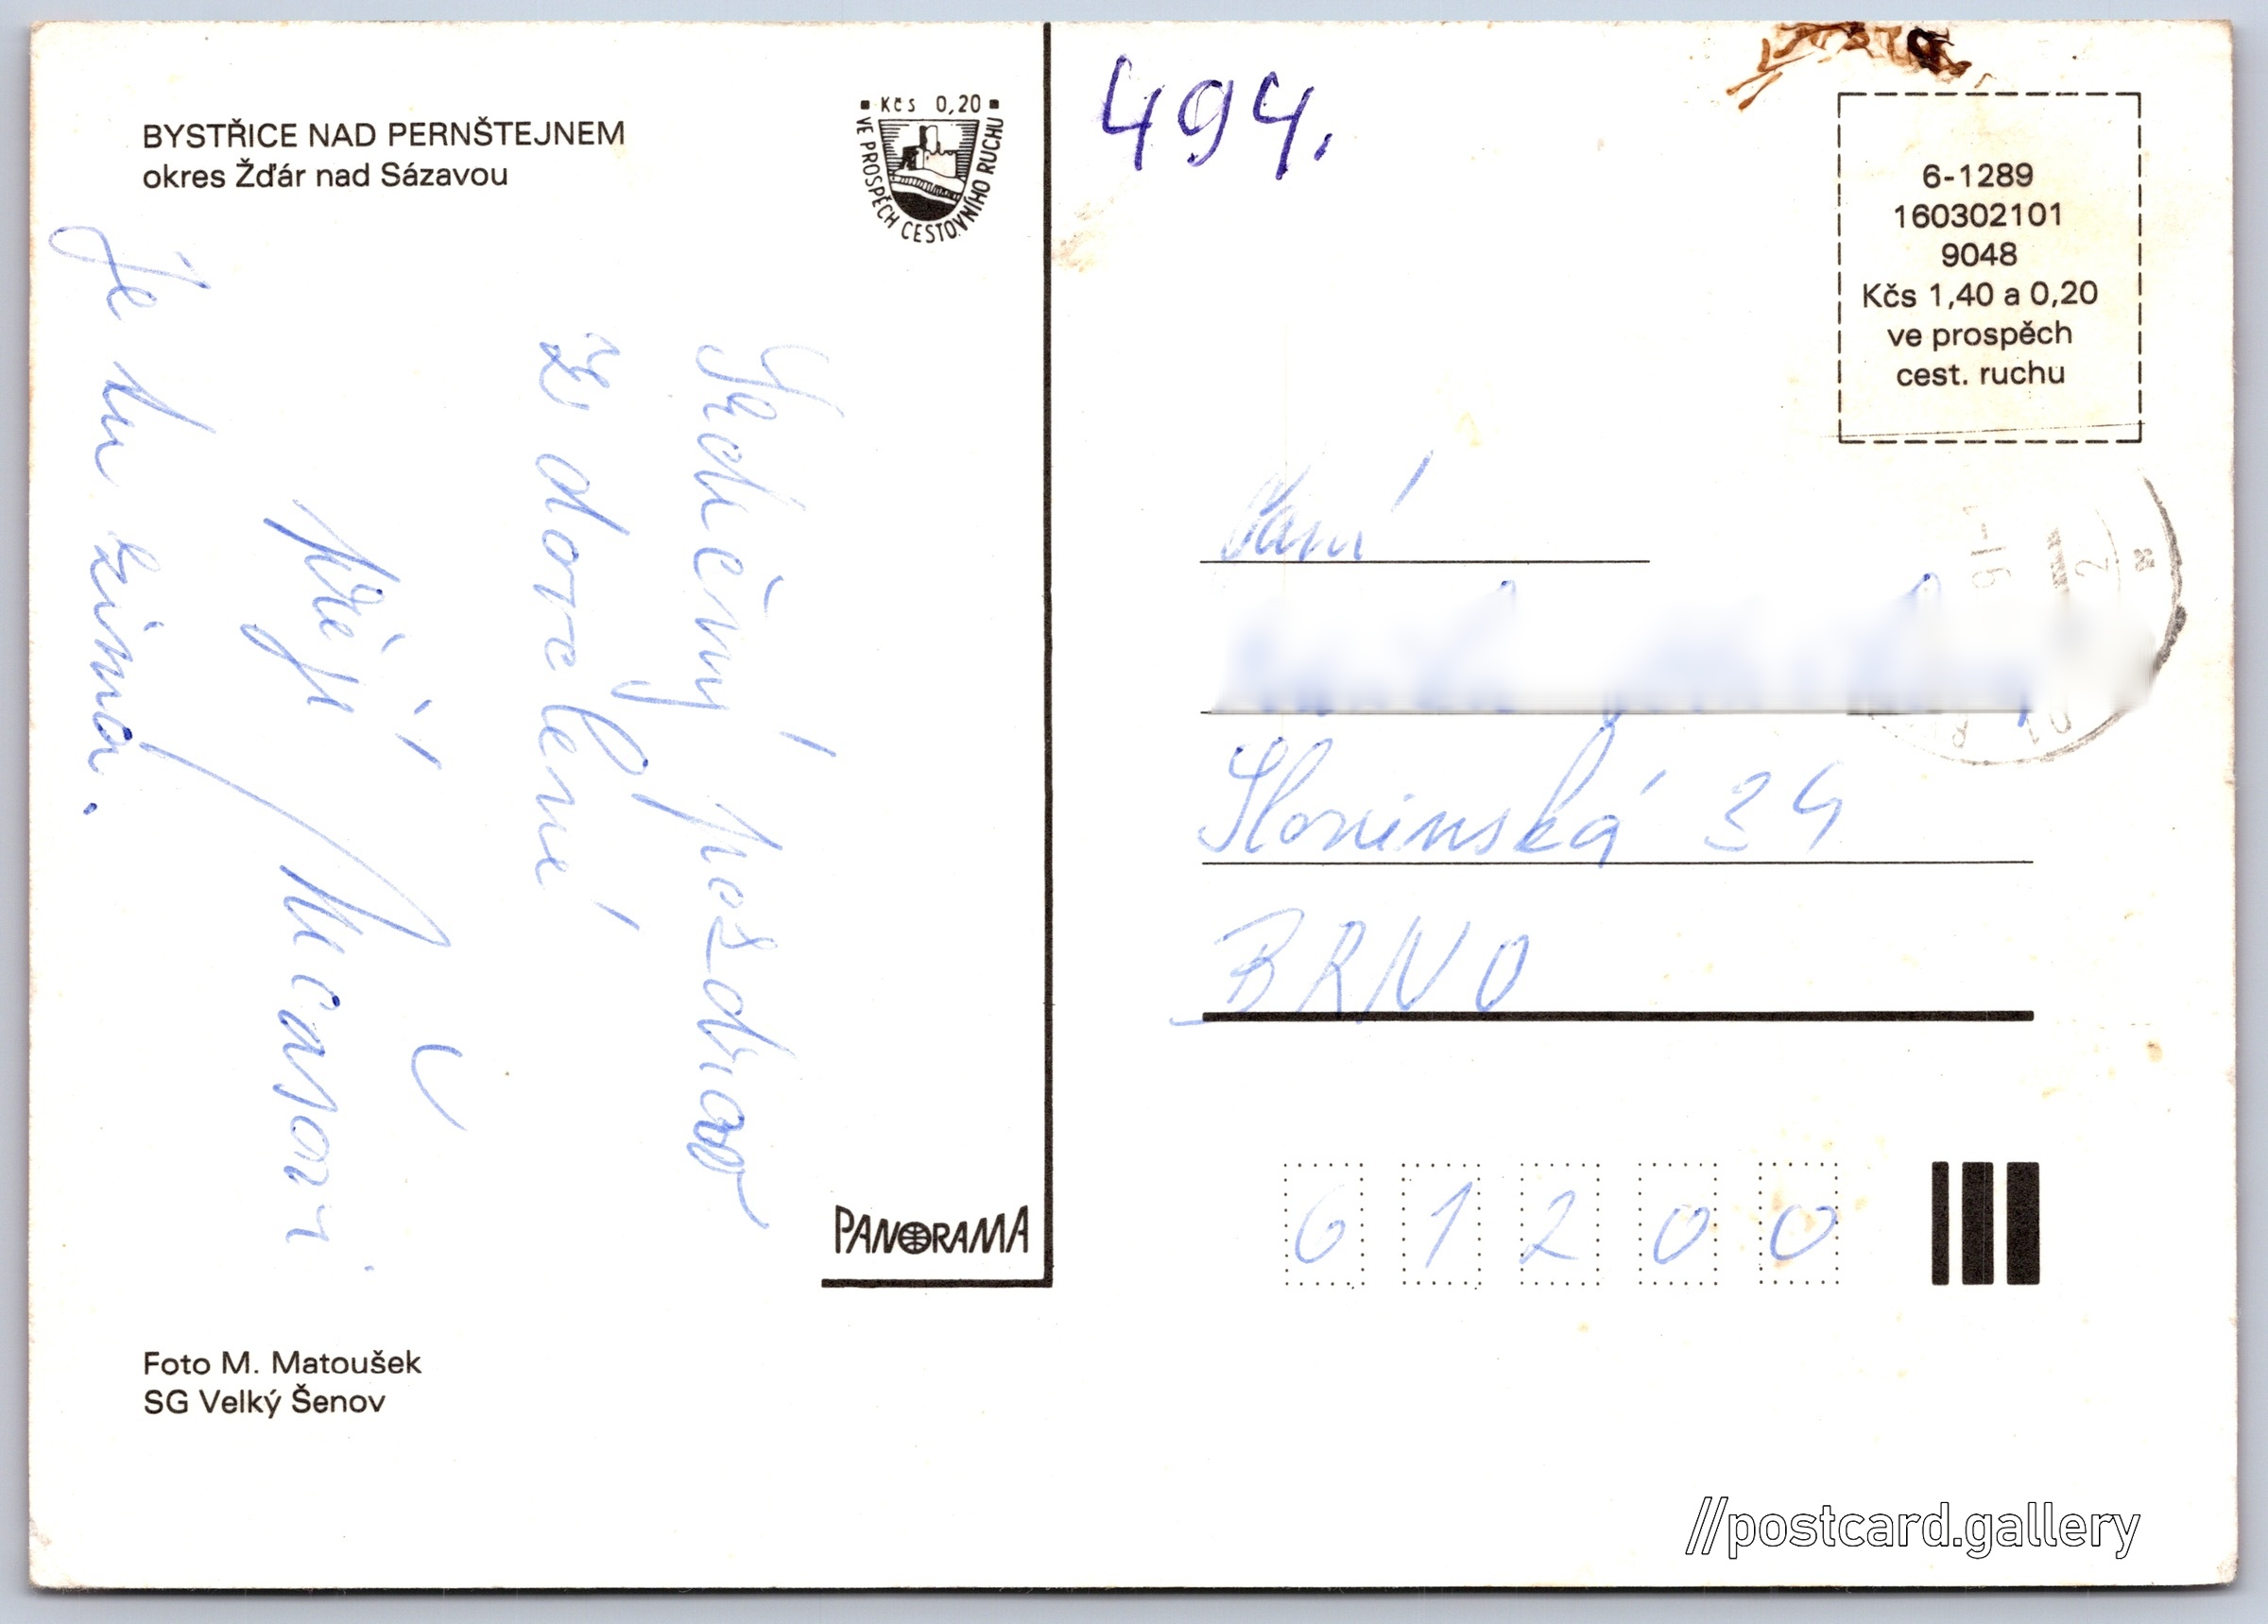 BYSTŘICE NAD PERNŠTEJNEM
okres Žďár nad Sázavou
Kčs 0,20
VE PROSPĚCH CESTOVNÍHO RUCHU
Srdečný pozdrav
z dovolené
přejí
Je tu zima.
PANORAMA
Foto M. Matoušek
SG Velký Šenov
494.
6-1289
160302101
9048
Kčs 1,40 a 0,20
ve prospěch
cest. ruchu
Paní
Slovinská 34
BRNO
61200
//postcard.gallery